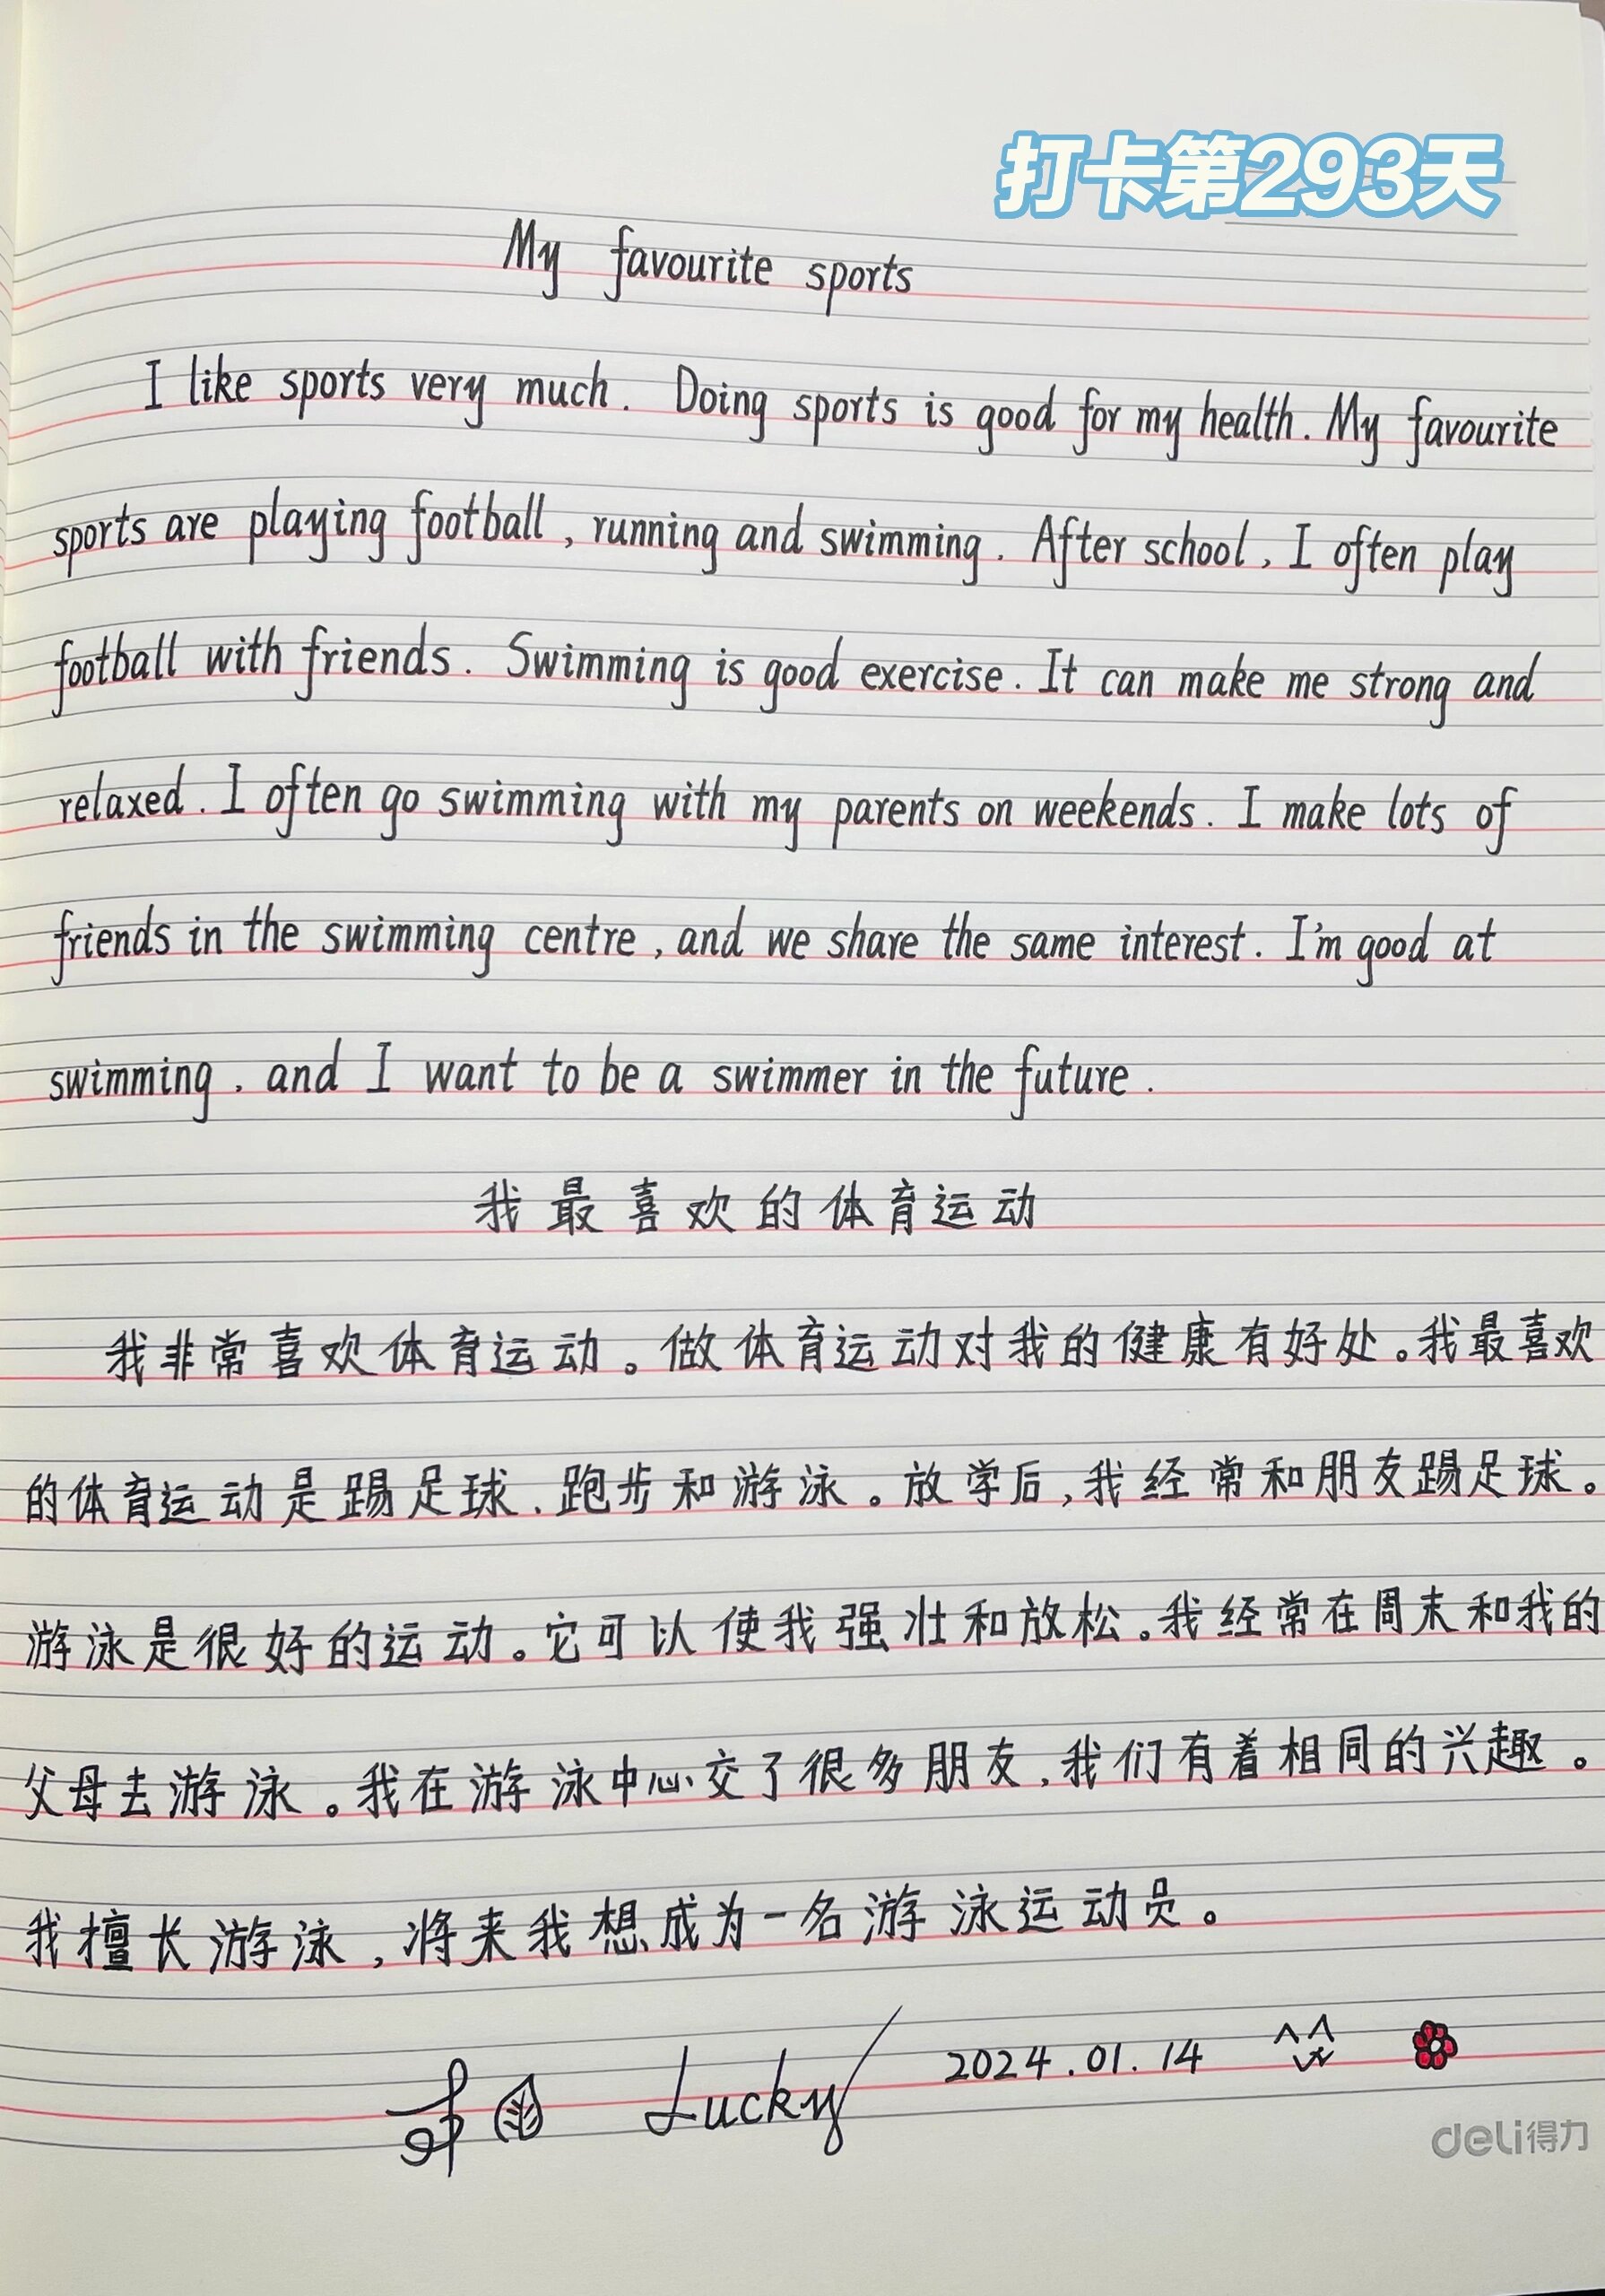 打卡第293天
My favourite sports
I like sports very much. Doing sports is good for my health. My favourite
sports are playing football, running and swimming. After school, I often play
football with friends. Swimming is good exercise. It can make me strong and
relaxed. I often go swimming with my parents on weekends. I make lots of
friends in the swimming centre, and we share the same interest. I'm good at
swimming, and I want to be a swimmer in the future.
我最喜欢的体育运动
我非常喜欢体育运动。做体育运动对我的健康有好处。我最喜欢
的体育运动是踢足球、跑步和游泳。放学后,我经常和朋友踢足球。
游泳是很好的运动。它可以使我强壮和放松。我经常在周末和我的
父母去游泳。我在游泳中心交了很多朋友,我们有着相同的兴趣。
我擅长游泳,将来我想成为一名游泳运动员。
Lucky 2024.01.14
deli得力